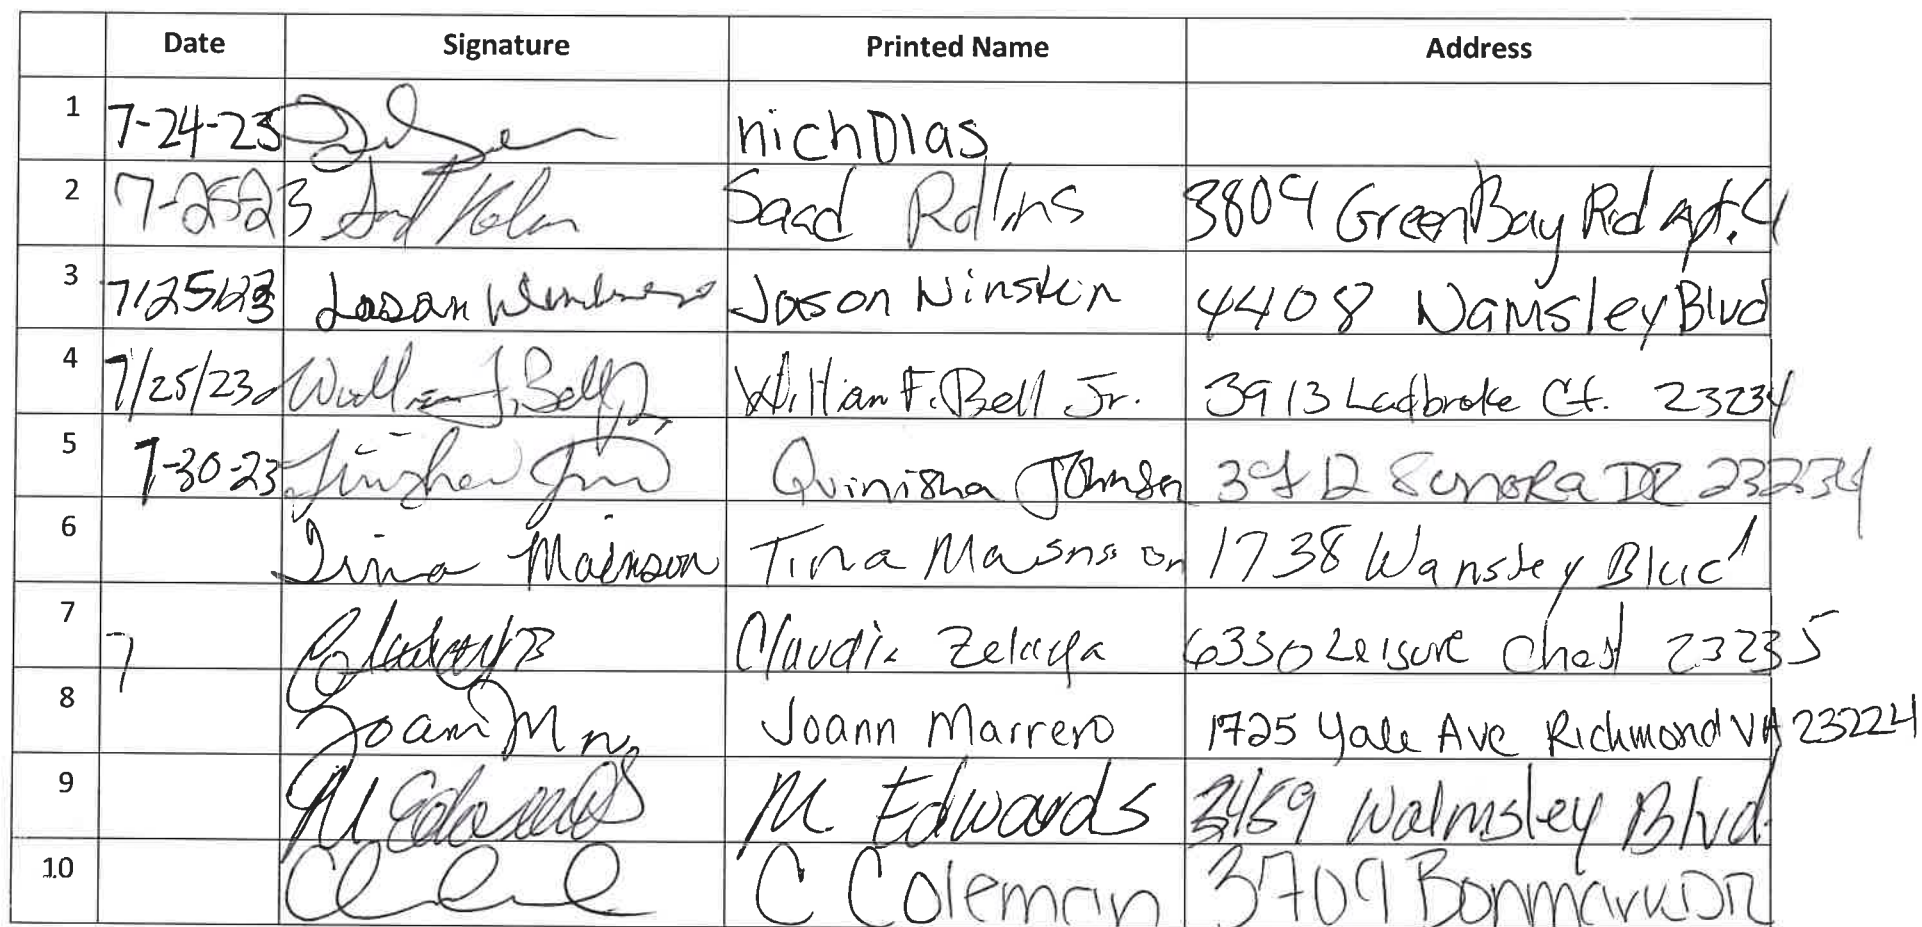 Date Signature Printed Name Address
1 7-24-23 nichDlas
2 7-25-23 Saad Rollins 3804 GreenBay Rd apt.4
3 7/25/23 Jason Winston 4408 Wamsley Blvd
4 7/25/23 William F. Bell Jr. William F. Bell Jr. 3913 Ladbroke Ct. 23234
5 7-30-23 Quinisha Johnson DR 23234
6 Tina Mainson Tina 1738 Wansley Blvd
7 7 Claudia Zelaya 6330 Leisure 23235
8 Joann Joann Marrero 1725 Yale Ave Richmond VA 23224
9 M Edwards M Edwards Walmsley Blvd.
10 C Coleman 3709 Bonmark DR